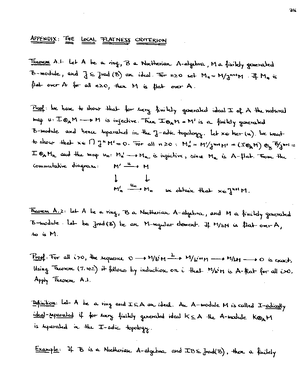 APPENDIX: THE LOCAL FLATNESS CRITERION
Theorem A.1. Let A be a ring, B a Noetherian A-algebra, M a finitely generated
B-module, and J ⊆ Jrad(B) an ideal. For n≥0 set Mₙ = M/Jⁿ⁺¹M. If Mₙ is
flat over A for all n≥0, then M is flat over A.
Proof: We have to show that for every finitely generated ideal I of A the natural
map u: I⊗_A M → M is injective. Then I⊗_A M = M' is a finitely generated
B-module and hence separated in the J-adic topology. Let x∈ker(u). We want
to show that x ∈ ∩ JⁿM' = 0. For all n≥0: M'ₙ = M'/Jⁿ⁺¹M' = (I⊗M) ⊗_B B/Jⁿ⁺¹ =
I⊗_A Mₙ and the map uₙ: M'ₙ → Mₙ is injective, since Mₙ is A-flat. From the
commutative diagram: M' → M
M'ₙ → Mₙ we obtain that x∈Jⁿ⁺¹M'.
Theorem A.2. Let A be a ring, B a Noetherian A-algebra, and M a finitely generated
B-module. Let b∈Jrad(B) be an M-regular element. If M/bM is flat over A,
so is M.
Proof: For all i>0, the sequence 0 → M/bⁱM → M/bⁱ⁺¹M → M/bM → 0 is exact.
Using Theorem it follows by induction on i that M/bⁱM is A-flat for all i>0.
Apply Theorem A.1.
Definition: Let A be a ring and I⊆A an ideal. An A-module M is called I-adically
ideal-separated if for every finitely generated ideal K⊆A the A-module K⊗_A M
is separated in the I-adic topology.
Example: If B is a Noetherian A-algebra and IB⊆Jrad(B), then a finitely